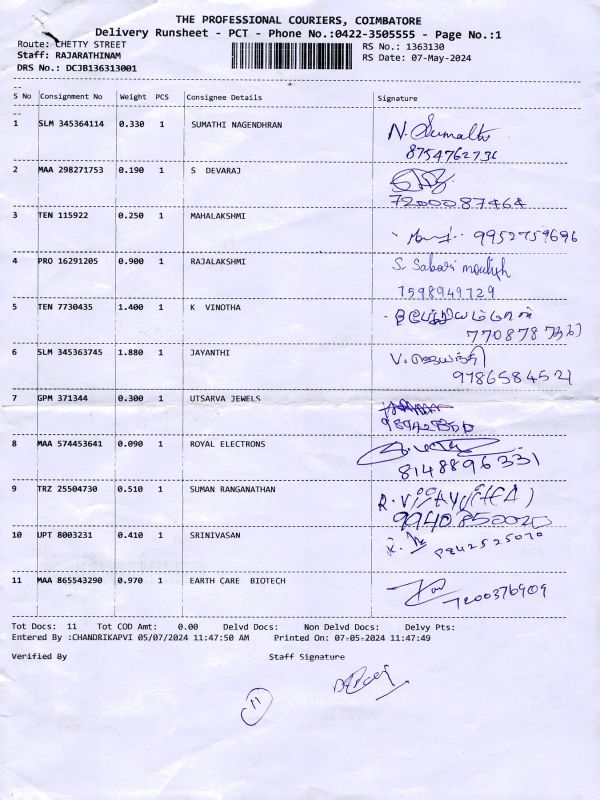 THE PROFESSIONAL COURIERS, COIMBATORE
Delivery Runsheet - PCT - Phone No.:0422-3505555 - Page No.:1
Route: CHETTY STREET
RS No.: 1363130
Staff: RAJARATHINAM
RS Date: 07-May-2024
DRS No.: DCJB136313001
S No Consignment No Weight PCS Consignee Details Signature
1 SLM 345364114 0.330 1 SUMATHI NAGENDHRAN N. Sumathi
8754762736
2 MAA 298271753 0.190 1 S DEVARAJ
7200087464
3 TEN 115922 0.250 1 MAHALAKSHMI
9952759696
4 PRO 16291205 0.900 1 RAJALAKSHMI S. Sabari
7598949729
5 TEN 7730435 1.400 1 K VINOTHA
6 SLM 345363745 1.880 1 JAYANTHI V. ஜெயந்தி
9786584521
7 GPM 371344 0.300 1 UTSARVA JEWELS
8 MAA 574453641 0.090 1 ROYAL ELECTRONS
8148896331
9 TRZ 25504730 0.510 1 SUMAN RANGANATHAN
9940850020
10 UPT 8003231 0.410 1 SRINIVASAN
9842525070
11 MAA 865543290 0.970 1 EARTH CARE BIOTECH
7200376909
Tot Docs: 11 Tot COD Amt: 0.00 Delvd Docs: Non Delvd Docs: Delvy Pts:
Entered By :CHANDRIKAPVI 05/07/2024 11:47:50 AM Printed On: 07-05-2024 11:47:49
Verified By Staff Signature
11